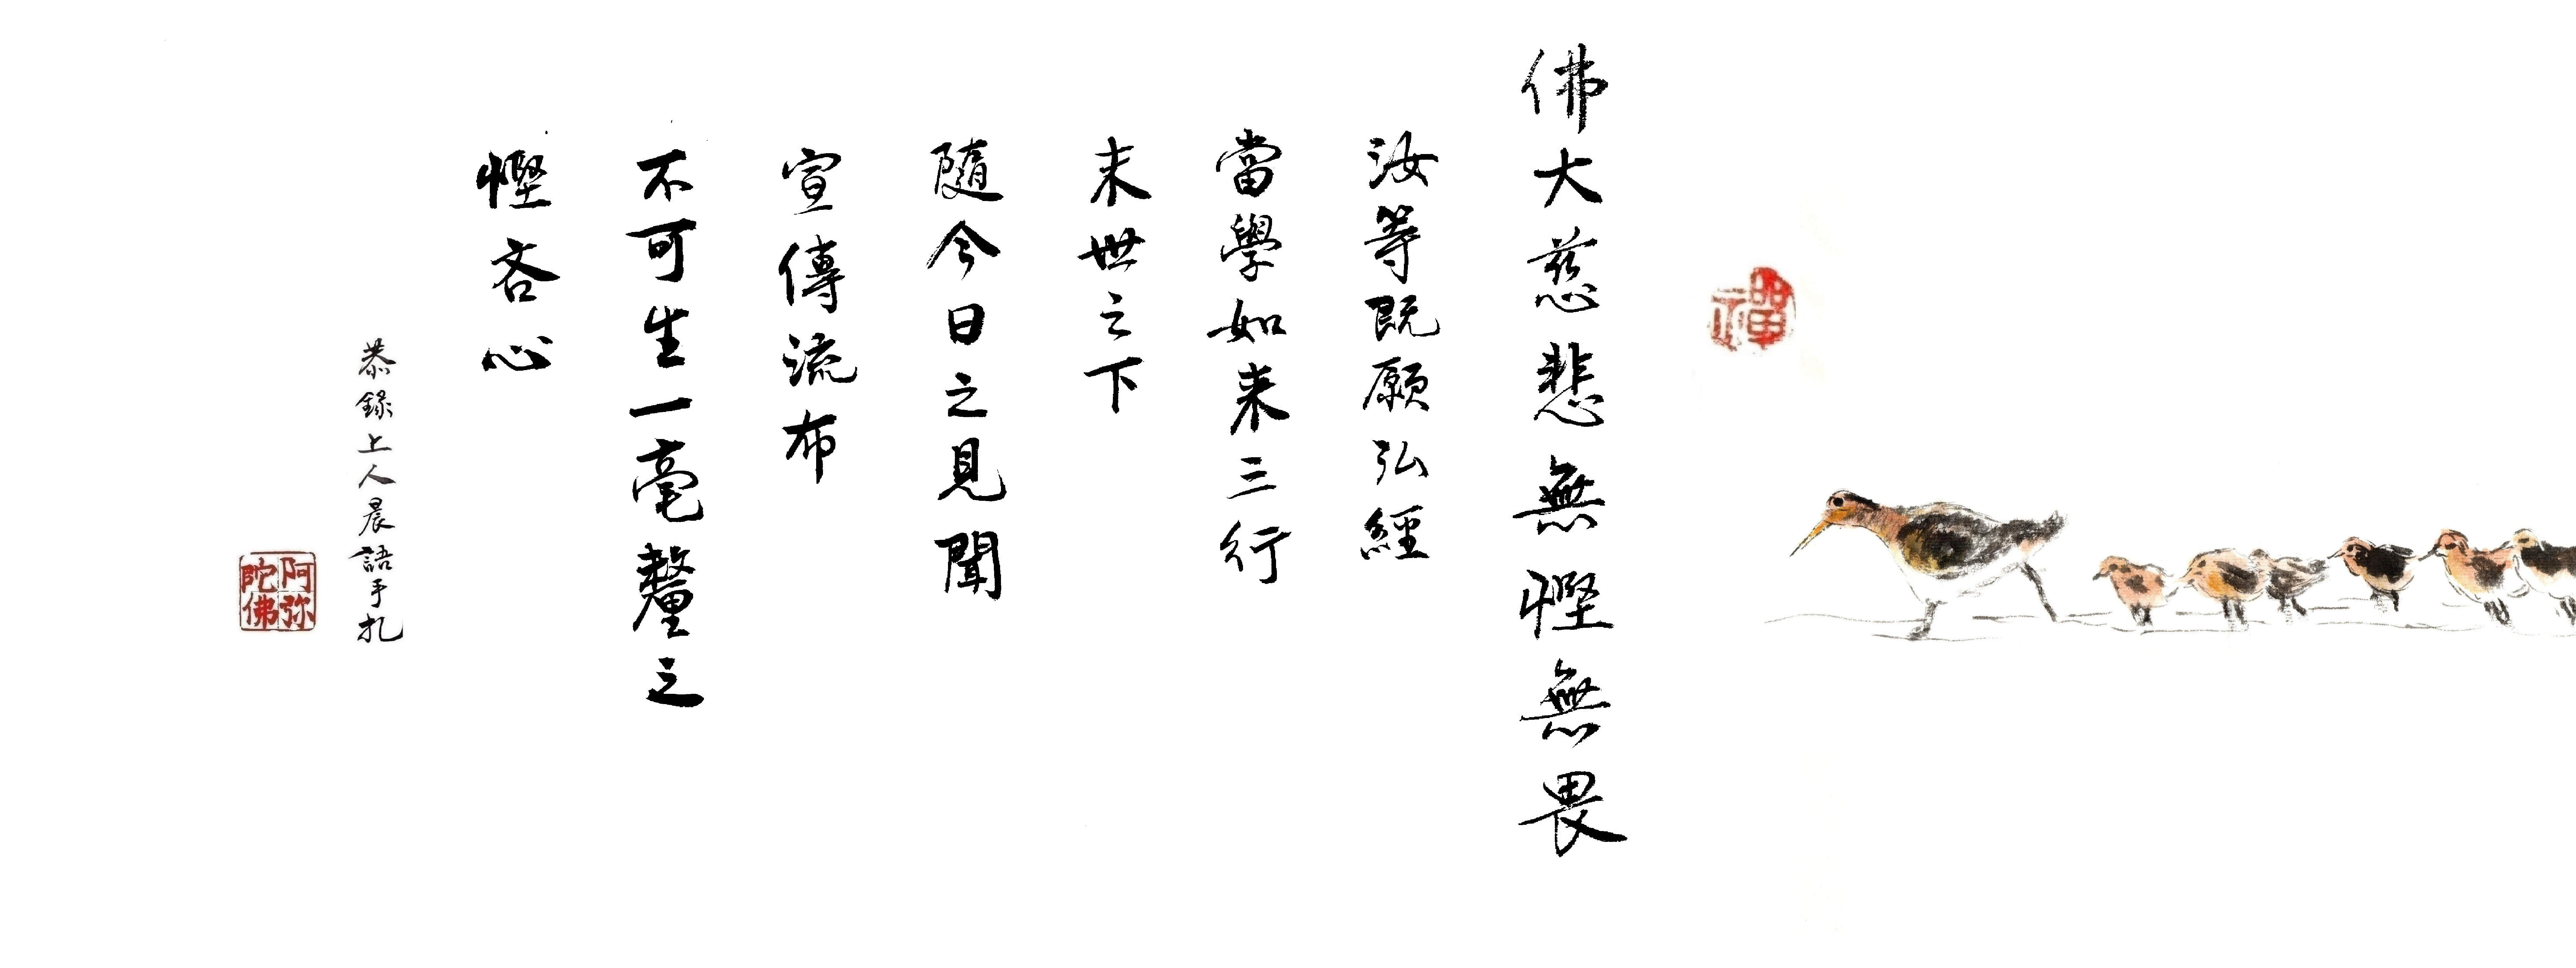 禪
佛大慈悲無慳無畏
汝等既願弘經
當學如来三行
末世之下
隨今日之見聞
宣傳流布
不可生一毫釐之
慳吝心
恭錄上人晨語手扎
阿弥陀佛